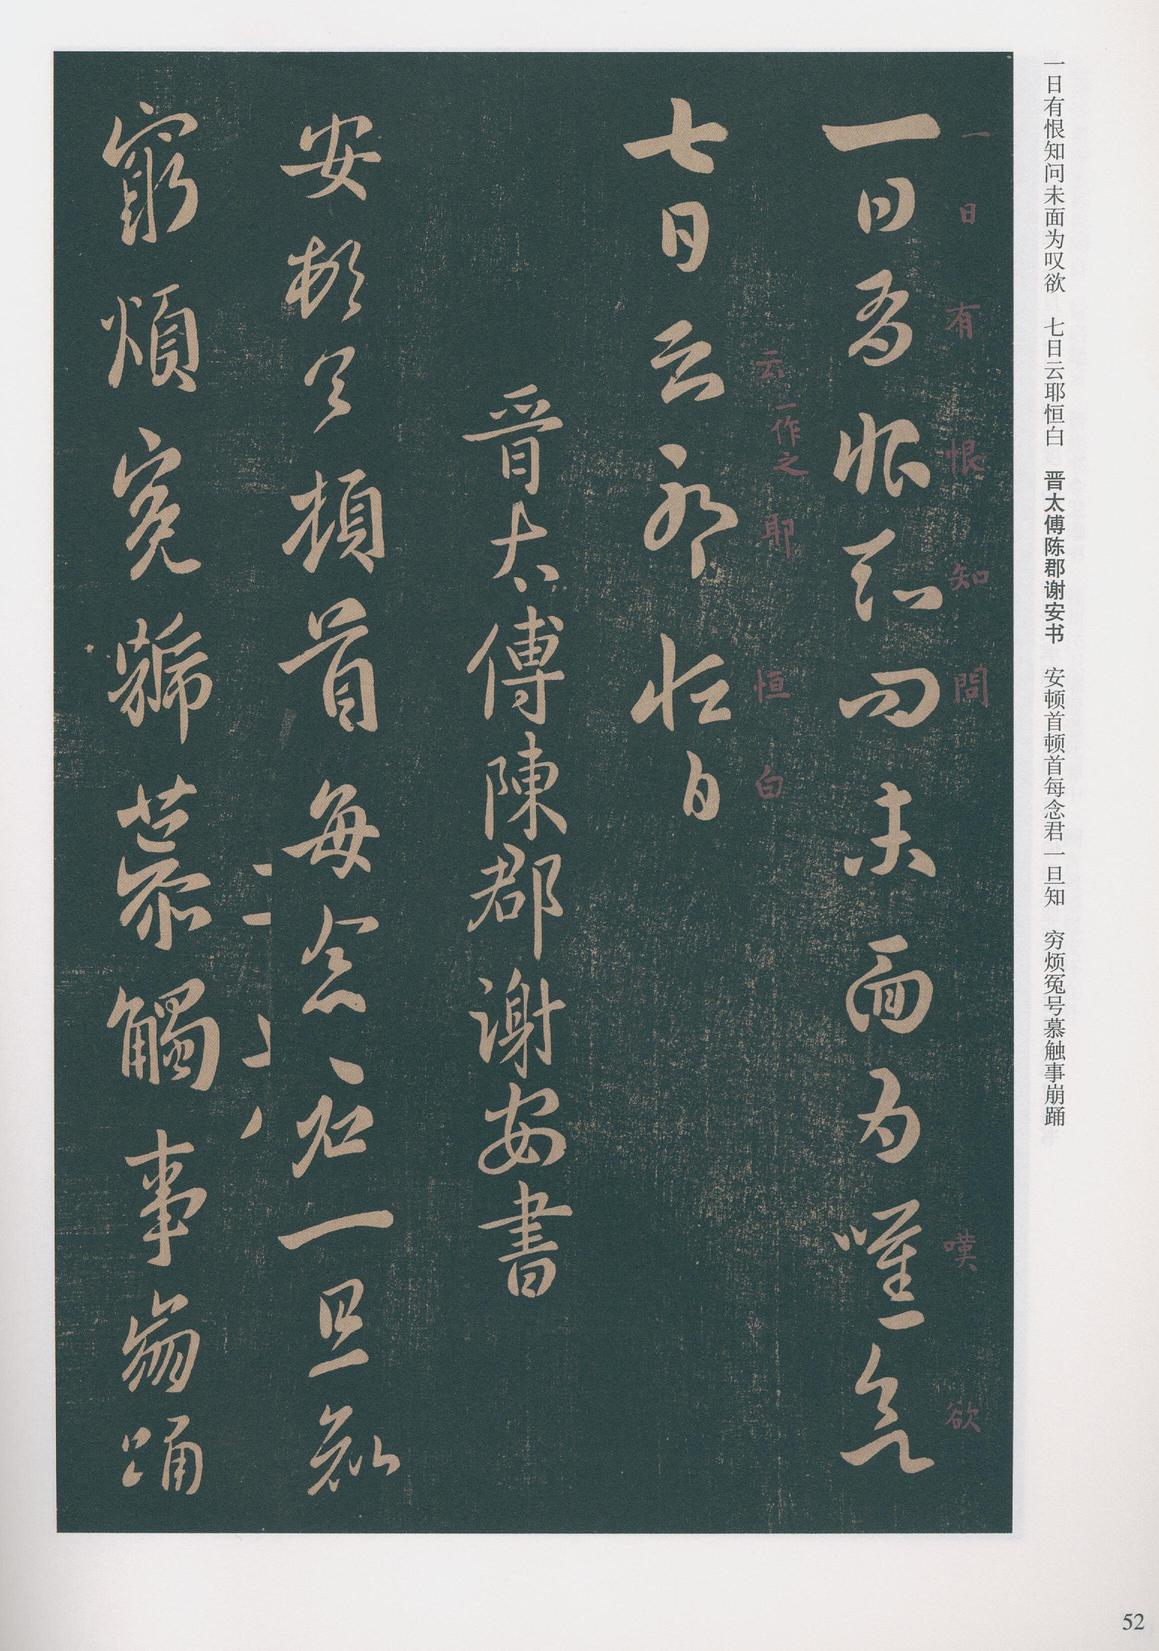 一日有恨知问未面为叹欲　七日云耶恒白　晋太傅陈郡谢安书　安顿首顿首每念君一旦知　穷烦冤号慕触事崩踊
一日有恨知問嘆欲
一日有恨知问未面为叹欲
云一作之耶恒白
七日云耶恒白
晋太傅陳郡谢安書
安頓首頓首每念君一旦知
窮煩冤號慕觸事崩踊
52